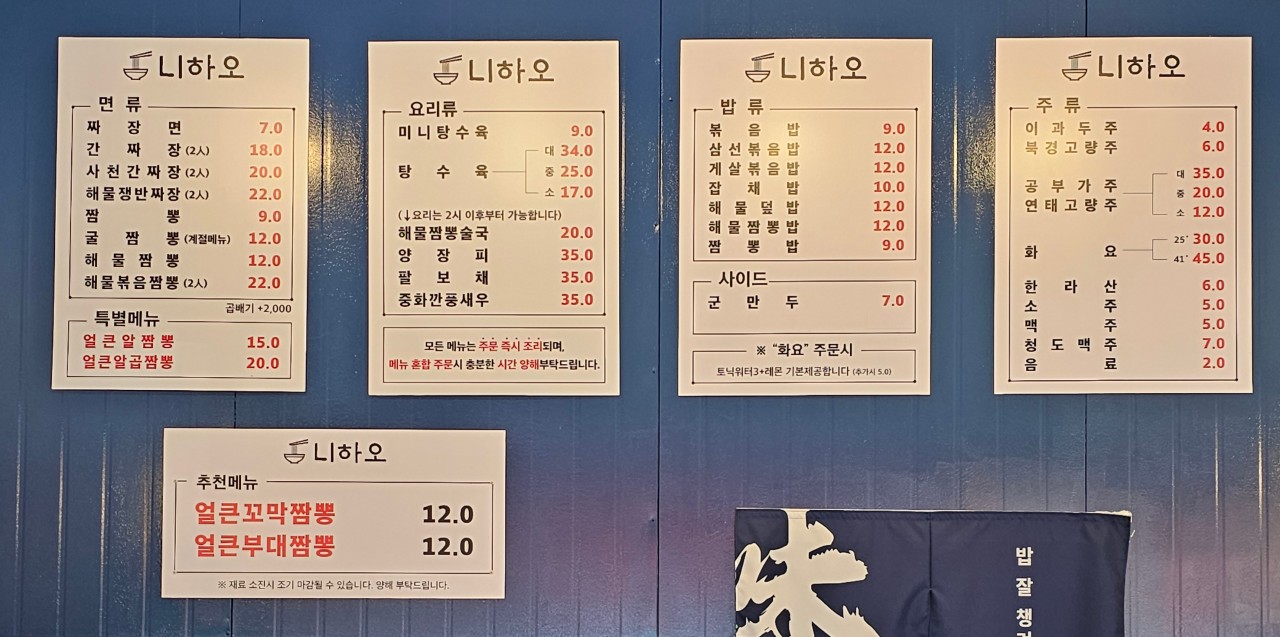 니하오
면 류
짜 장 면 7.0
간 짜 장 (2人) 18.0
사천간짜장 (2人) 20.0
해물쟁반짜장 (2人) 22.0
짬 뽕 9.0
굴 짬 뽕 (계절메뉴) 12.0
해 물 짬 뽕 12.0
해물볶음짬뽕 (2人) 22.0
곱배기 +2,000
특별메뉴
얼큰알짬뽕 15.0
얼큰알곱짬뽕 20.0
니하오
요리류
미니탕수육 9.0
탕 수 육
대 34.0
중 25.0
소 17.0
(↓요리는 2시 이후부터 가능합니다)
해물짬뽕술국 20.0
양 장 피 35.0
팔 보 채 35.0
중화깐풍새우 35.0
모든 메뉴는 주문 즉시 조리되며,
메뉴 혼합 주문시 충분한 시간 양해부탁드립니다.
니하오
밥 류
볶 음 밥 9.0
삼선볶음밥 12.0
게살볶음밥 12.0
잡 채 밥 10.0
해 물 덮 밥 12.0
해물짬뽕밥 12.0
짬 뽕 밥 9.0
사이드
군 만 두 7.0
※ “화요” 주문시
토닉워터3+레몬 기본제공합니다 (추가시 5.0)
니하오
주 류
이 과 두 주 4.0
북경고량주 6.0
공 부 가 주
연태고량주
대 35.0
중 20.0
소 12.0
화 요
25° 30.0
41° 45.0
한 라 산 6.0
소 주 5.0
맥 주 5.0
청 도 맥 주 7.0
음 료 2.0
니하오
추천메뉴
얼큰꼬막짬뽕 12.0
얼큰부대짬뽕 12.0
※ 재료 소진시 조기 마감될 수 있습니다. 양해 부탁드립니다.
味
밥
잘
챙